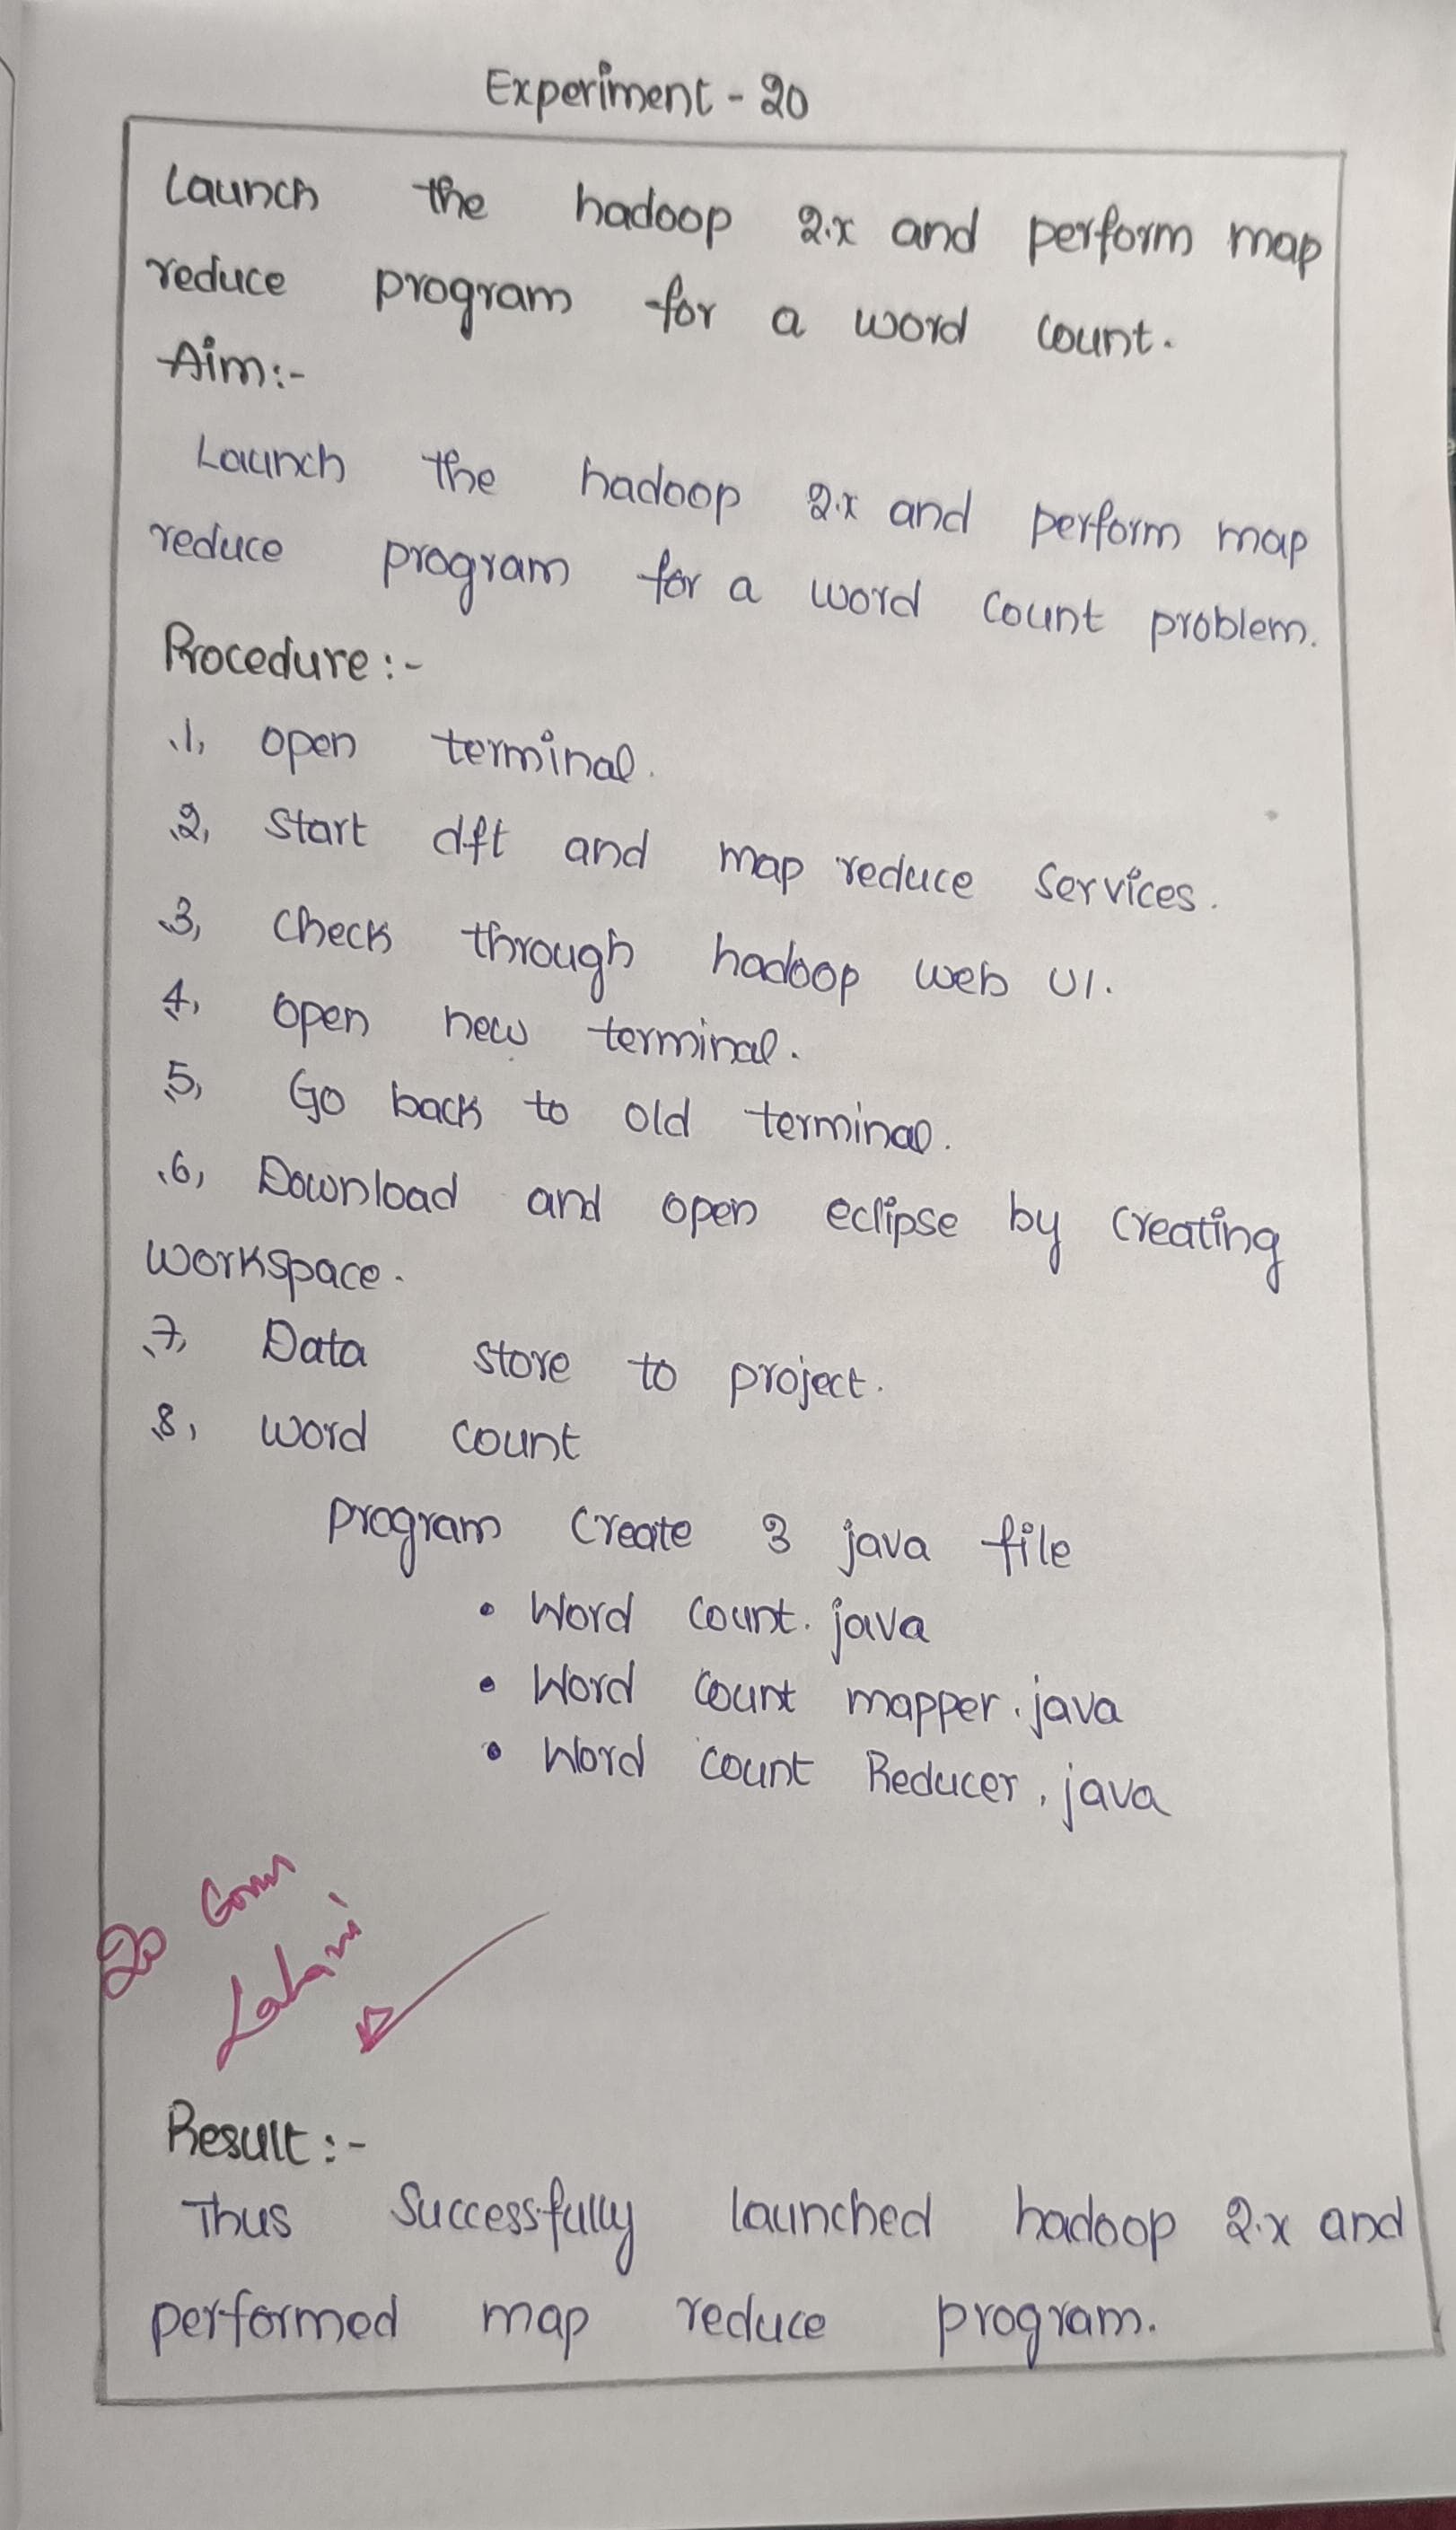 Experiment - 20
Launch the hadoop 2.x and perform map
reduce program for a word count.
Aim:-
Launch the hadoop 2.x and perform map
reduce program for a word count problem.
Procedure:-
1, open terminal.
2, Start dft and map reduce services.
3, Check through hadoop web UI.
4, Open new terminal.
5, Go back to old terminal.
6, Download and open eclipse by creating
workspace.
7, Data store to project.
8, word count
program create 3 java file
• Word count.java
• Word count mapper.java
• Word count Reducer.java
20
Result:-
Thus Successfully launched hadoop 2.x and
performed map reduce program.